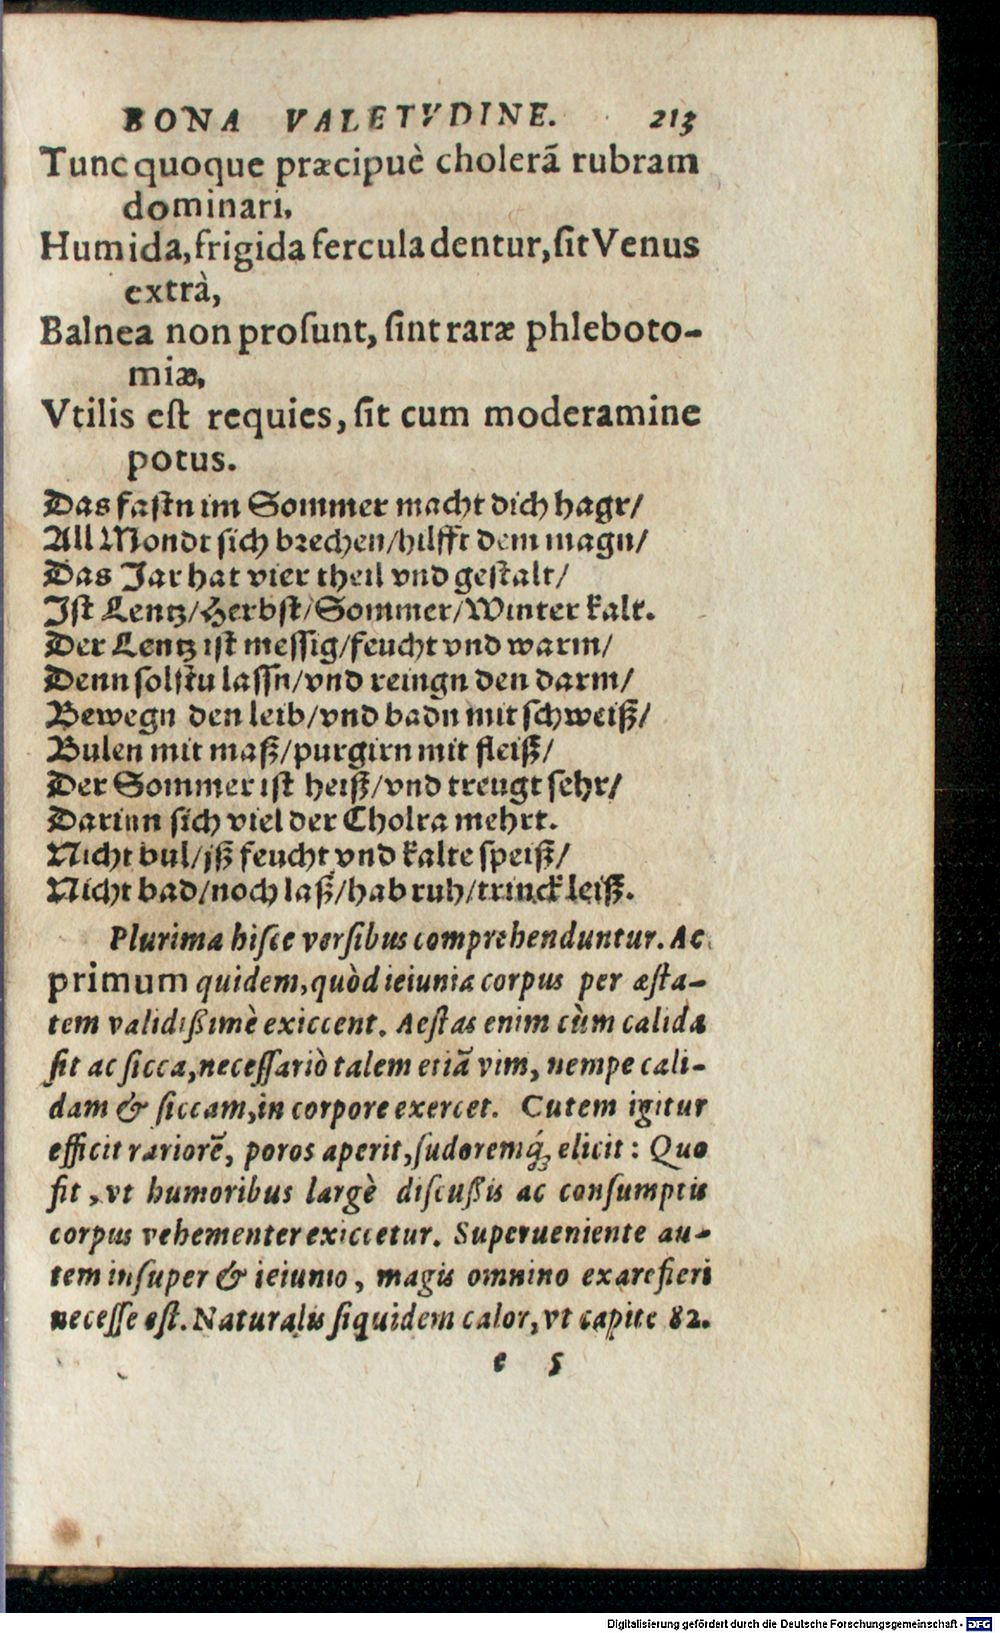 BONA VALETVDINE. 213
Tunc quoque præcipuè cholerã rubram
dominari.
Humida, frigida fercula dentur, ſit Venus
extrà,
Balnea non proſunt, ſint raræ phleboto-
miæ,
Vtilis eſt requies, ſit cum moderamine
potus.
Das faſtn im Sommer macht dich hagr/
All Mondt ſich brechen/hilfft dem magn/
Das Jar hat vier theil vnd geſtalt/
Iſt Lentz/Herbſt/Sommer/Winter kalt.
Der Lentz iſt meſſig/feucht vnd warm/
Denn ſolſtu laſſn/vnd reingn den darm/
Bewegn den leib/vnd badn mit ſchweiß/
Bulen mit maß/purgirn mit fleiß/
Der Sommer iſt heiß/vnd treugt ſehr/
Darinn ſich viel der Cholra mehrt.
Nicht bul/jß feucht vnd kalte ſpeiß/
Nicht bad/noch laß/hab ruh/trinck leiß.
Plurima hiſce verſibus comprehenduntur. Ac
primum quidem, quòd ieiunia corpus per æſta-
tem validißimè exiccent. Aeſtas enim cùm calida
ſit ac ſicca, neceſſariò talem etiã vim, nempe cali-
dam & ſiccam, in corpore exercet. Cutem igitur
efficit rariorẽ, poros aperit, ſudoremq́; elicit: Quo
fit, vt humoribus largè diſcußis ac conſumptis
corpus vehementer exiccetur. Superueniente au-
tem inſuper & ieiunio, magis omnino exarefieri
neceſſe eſt. Naturalis ſiquidem calor, vt capite 82.
e 5
Digitalisierung gefördert durch die Deutsche Forschungsgemeinschaft - DFG